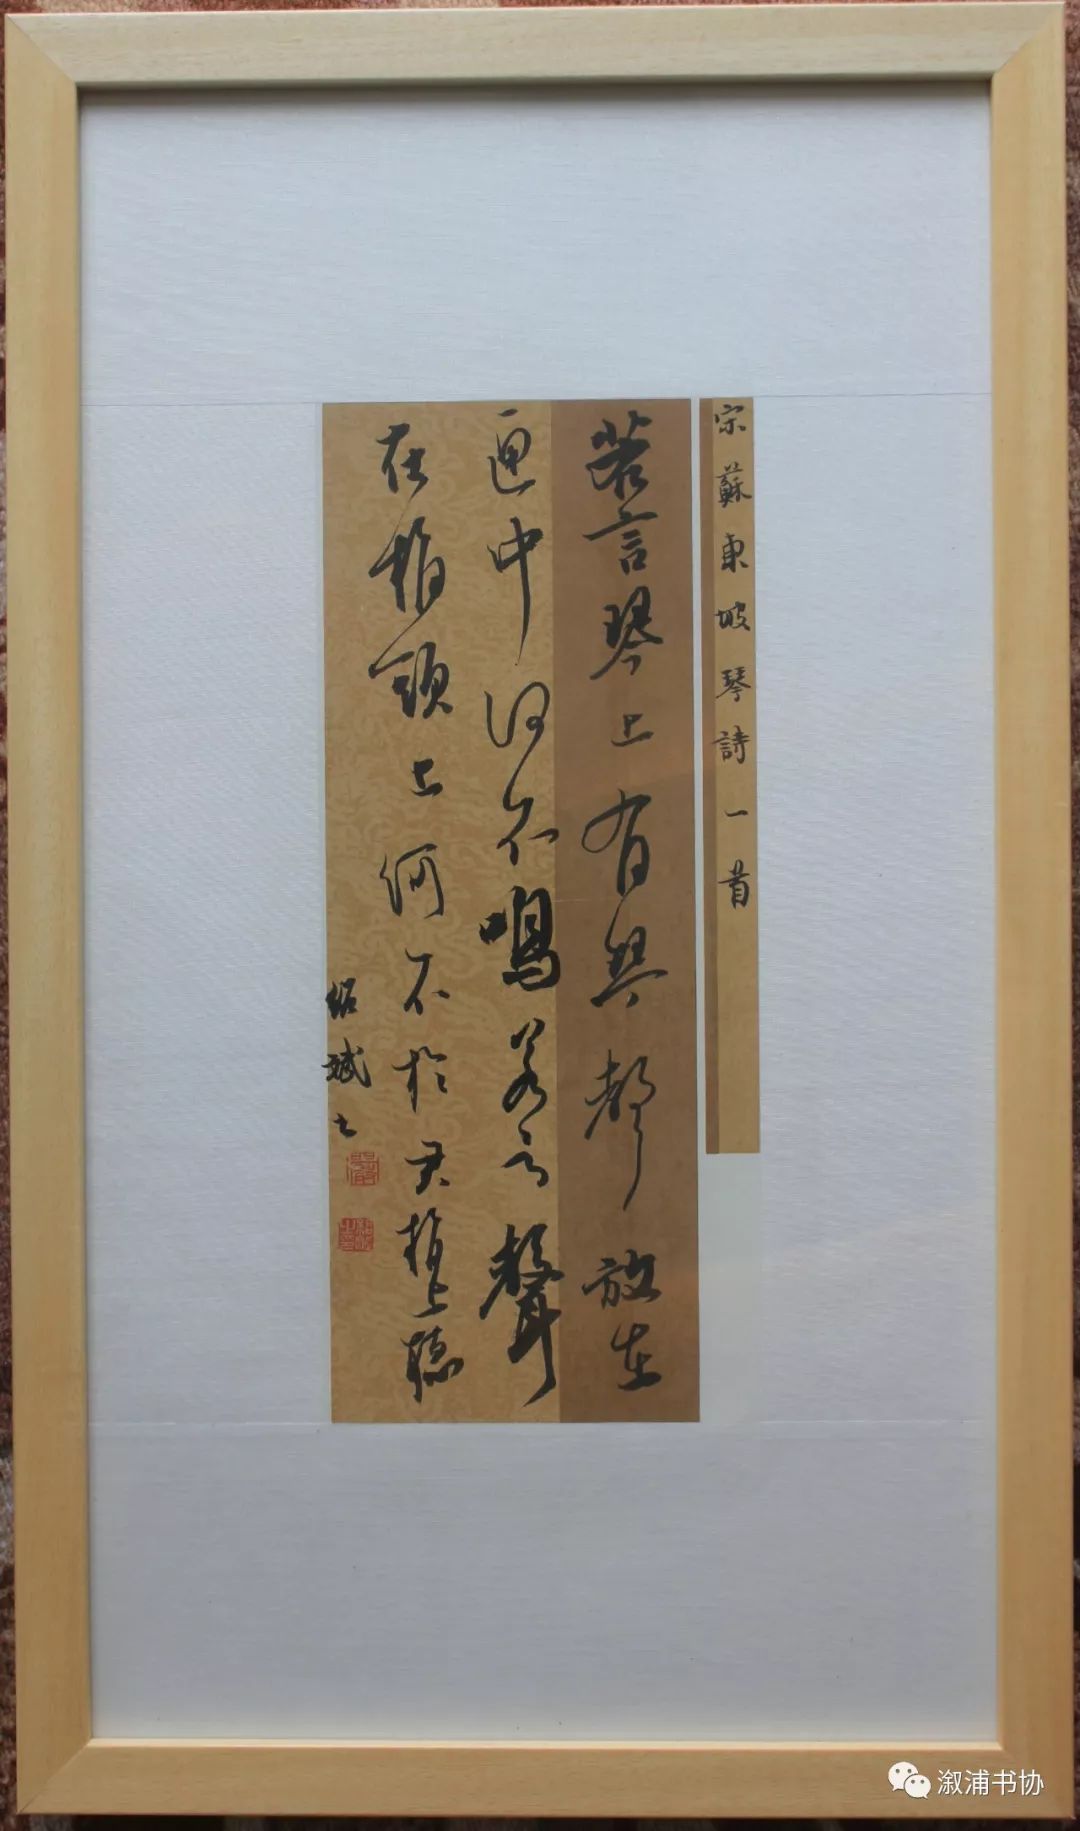 宋蘇東坡琴詩一首
若言琴上有琴聲放在
匣中何不鳴若言聲
在指頭上何不於君指上聽
紹斌
溆浦书协